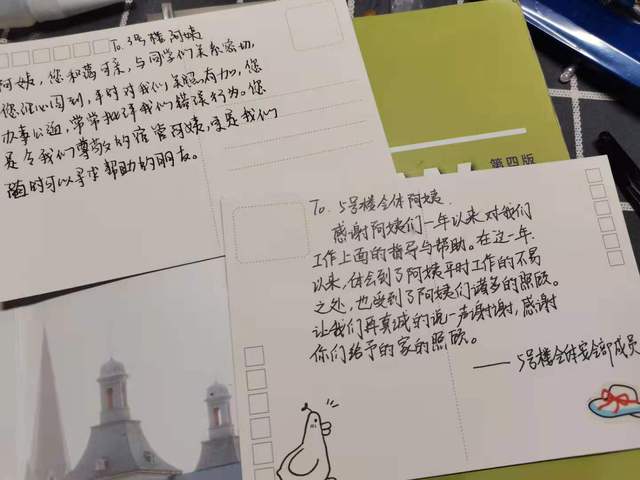 To. 3号楼阿姨
阿姨，您和蔼可亲，与同学们关系密切，
您细心周到，平时对我们关照有加，您
办事公道，常常批评我们错误行为。您
是令我们尊敬的宿管阿姨，更是我们
随时可以寻求帮助的朋友。
第四版
To. 5号楼全体阿姨.
感谢阿姨们一年以来对我们
工作上面的指导与帮助。在这一年
以来，体会到了阿姨平时工作的不易
之处，也受到了阿姨们诸多的照顾。
让我们再真诚的说一声谢谢，感谢
你们给予的家的照顾。
——5号楼全体安全部成员